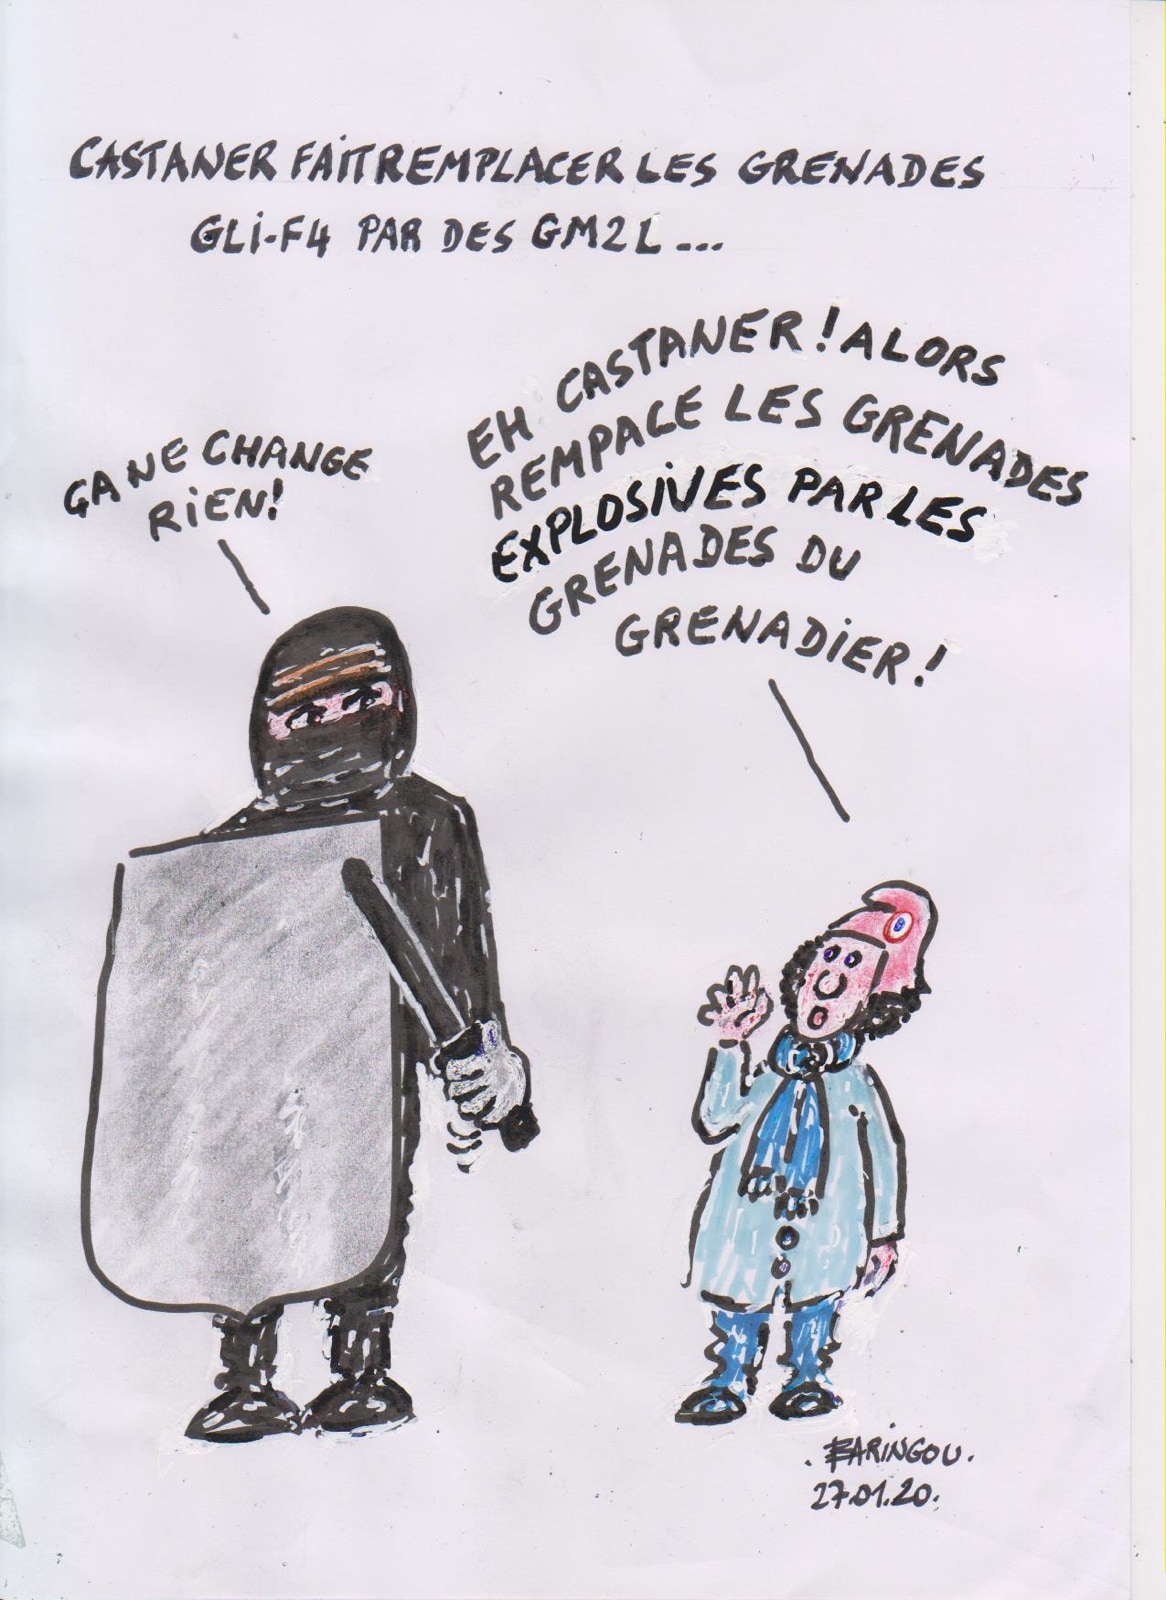 CASTANER FAIT REMPLACER LES GRENADES
GLI-F4 PAR DES GM2L...
ÇA NE CHANGE
RIEN!
EH CASTANER! ALORS
REMPACE LES GRENADES
EXPLOSIVES PAR LES
GRENADES DU
GRENADIER!
.BARINGOU.
27.01.20.